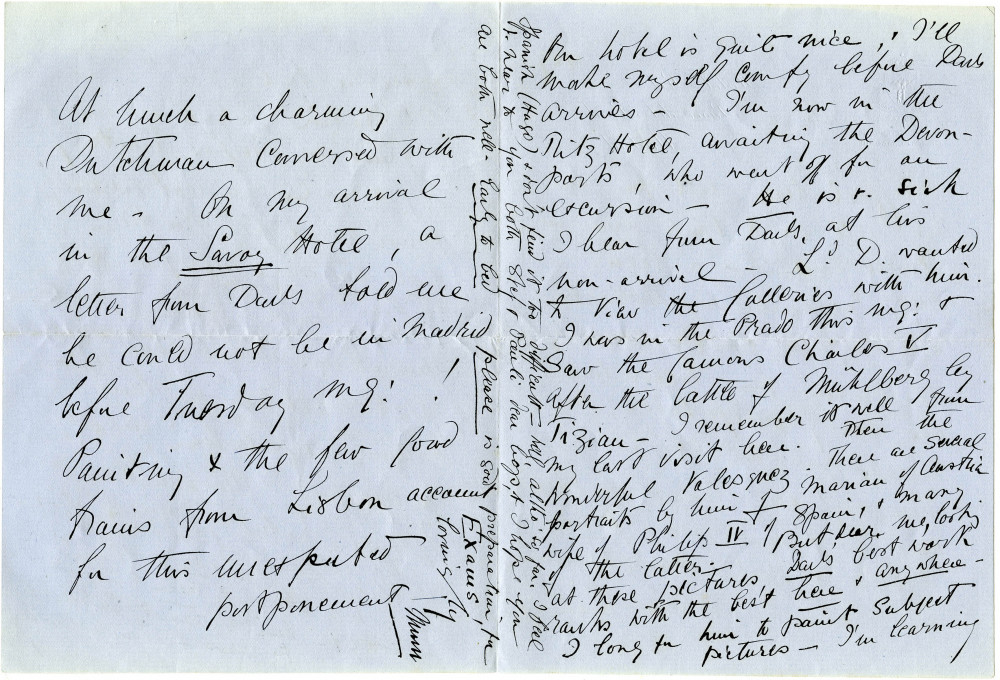 At lunch a charming
Dutchman conversed with
me – On my arrival
in the Savoy Hotel, a
letter from Dads told me
he could not be in Madrid
before Tuesday mg: !
Painting & the few good
trains from Lisbon account
for this unexpected
postponement
Our hotel is quite nice, I'll
make myself comfy before Dads
arrives – I'm now in the
Ritz Hotel, awaiting the Devon-
ports, who went off for an
excursion – He is v. sick
I hear from Dads, at his
non-arrival – Ld D. wanted
to view the Galleries with him.
I was in the Prado this mg: &
saw the famous Charles V
after the battle of Mühlberg by
Tizian – I remember it well from
my last visit here. Then the
wonderful Velasquez. There are several
portraits by him of Marian of Austria
wife of Philip IV of Spain, & many
of the latter. But dear me, look
at these pictures, Dads' best work
ranks with the best here & anywhere –
I long for him to paint subject
pictures – I'm learning
Spanish (Hugo) & don't find it too difficult –
to hear you both say & Pauli dear boys, & I hope you
are both well – Early to bed please is good preparation for
Exams!
Lovingly
Mum